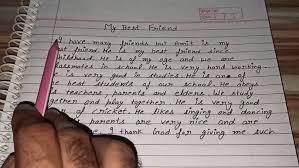 My Best Friend
I have many friends but Amit is my
friend. He is my best friend since
childhood. He is of my age and we are
classmates in school. He is very hand working
He is very good in studies. He is one of
best students of our school. He obeys
teachers, parents and elders. We study
gether and play together. He is very good
of cricket. He likes singing and dancing
parents are very nice and are
I thank God for giving me such